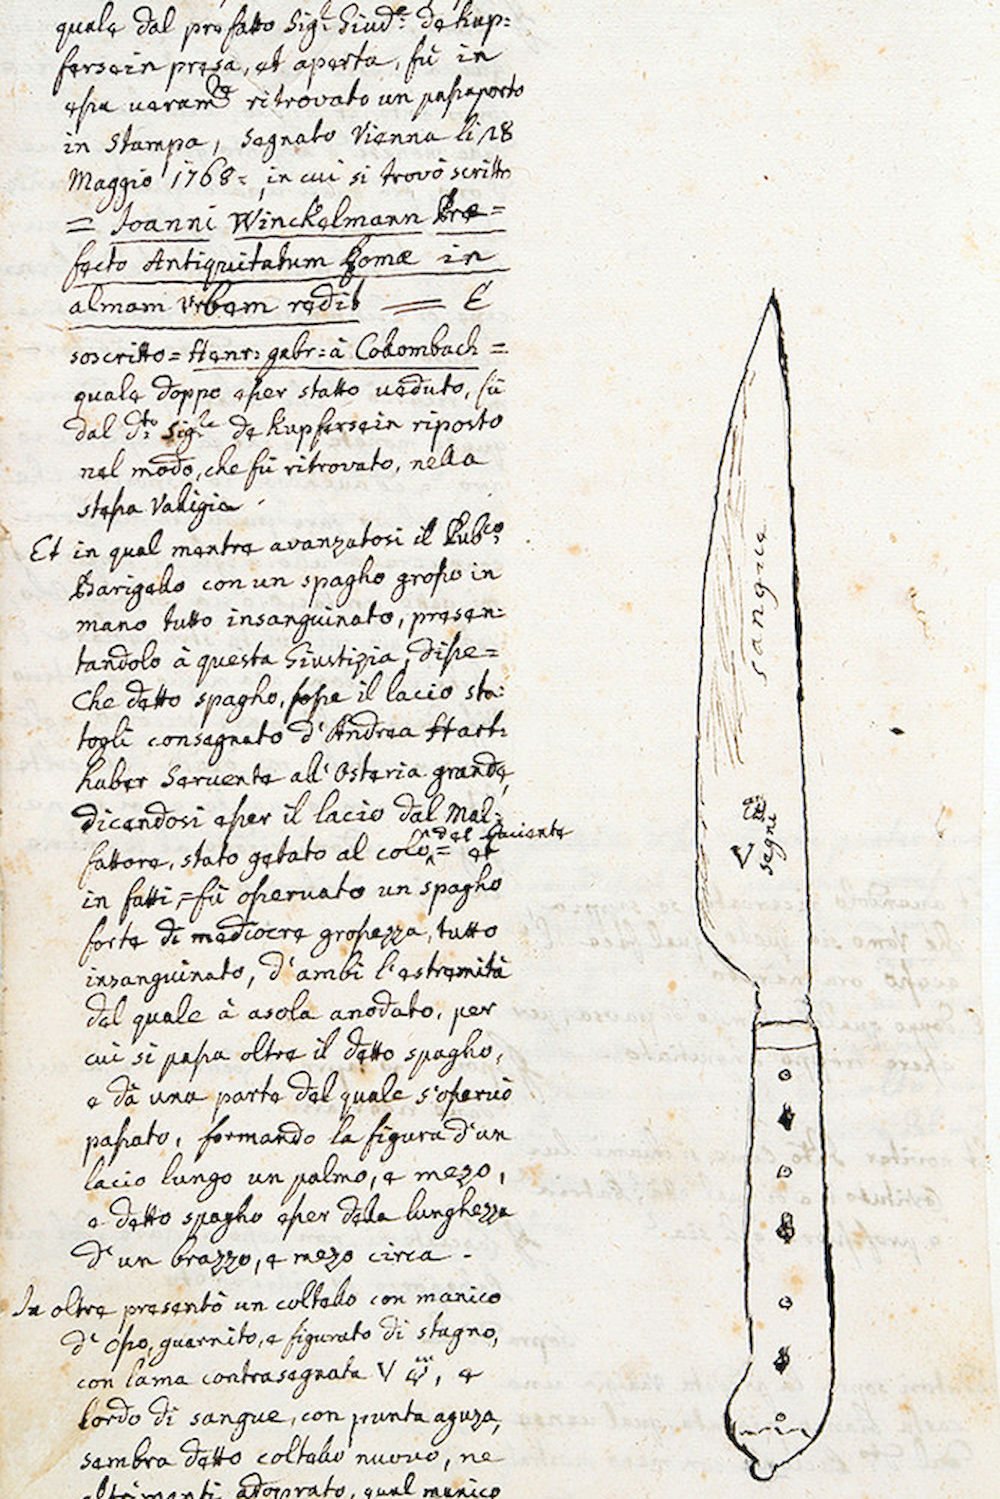 quale dal prefatto Sig.r Giud.e de Kup:
fersein presa, et aperta, fù in
essa veram.te ritrovato un passaporto
in stampa, segnato Vienna li 28
Maggio 1768 =, in cui si trovò scritto
= Joanni Winckelmann Præ=
fecto Antiquitatum Romæ in
almam Urbem redit = E
soscritto = Henr: gabr: à Collombach =
quale doppo esser statto veduto, fù
dal d.to Sig.re de Kupfersein riposto
nel modo, che fù ritrovato, nella
stessa Valigia.
Et in qual mentre avanzatosi il Pub.co
Barigello con un spagho grosso in
mano tutto insanguinato, presen:
tandolo à questa Giustizia, disse =
Che detto spagho, fosse il lacio sta:
togli consegnato d'Andrea Hart:
huber Servente all'Osteria grande,
dicendosi esser il lacio dal Mal:
fattore, stato getato al colo del Paciente = et
in fatti = fù osservato un spagho
forte di mediocre grossezza, tutto
insanguinato, d'ambi l'estremità
del quale à asola anodato, per
cui si passa oltre il detto spagho,
e dà una parte del quale s'osservò
passato, formando la figura d'un
lacio lungo un palmo, e mezo,
e detto spagho esser della lunghezza
d'un brazzo, e mezo circa -
In oltre presentò un coltello con manico
d'osso, guarnito, e figurato di stagno,
con lama contrasegnata V, e
lordo di sangue, con punta aguza,
sembra detto coltello nuovo, ne
altrimenti adoprato, qual manico
sangue
V
segni